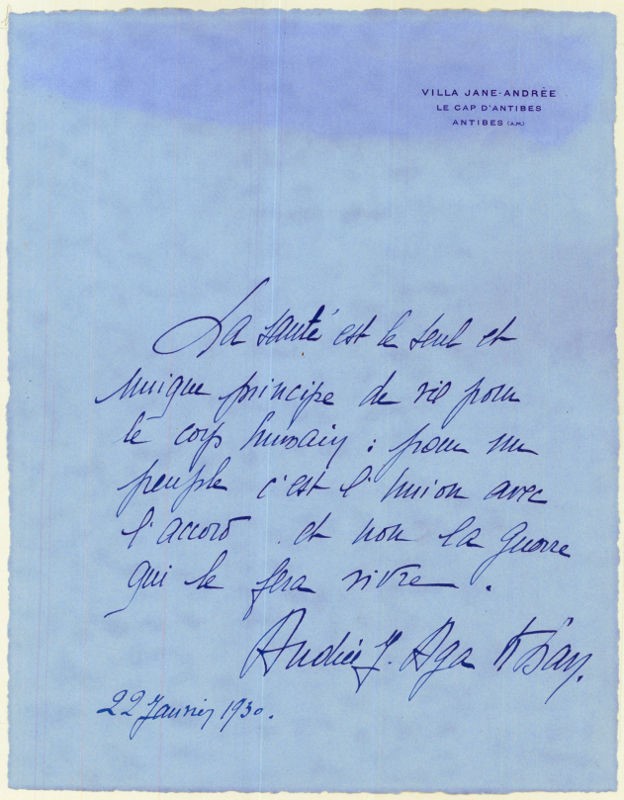 VILLA JANE-ANDRÉE
LE CAP D'ANTIBES
ANTIBES (A.M.)
La santé est le seul et
unique principe de vie pour
le corp humain : pour un
peuple c'est l'union avec
l'accord et non la guerre
qui le fera vivre.
Andrée J. Aga Khan.
22 Janvier 1930.